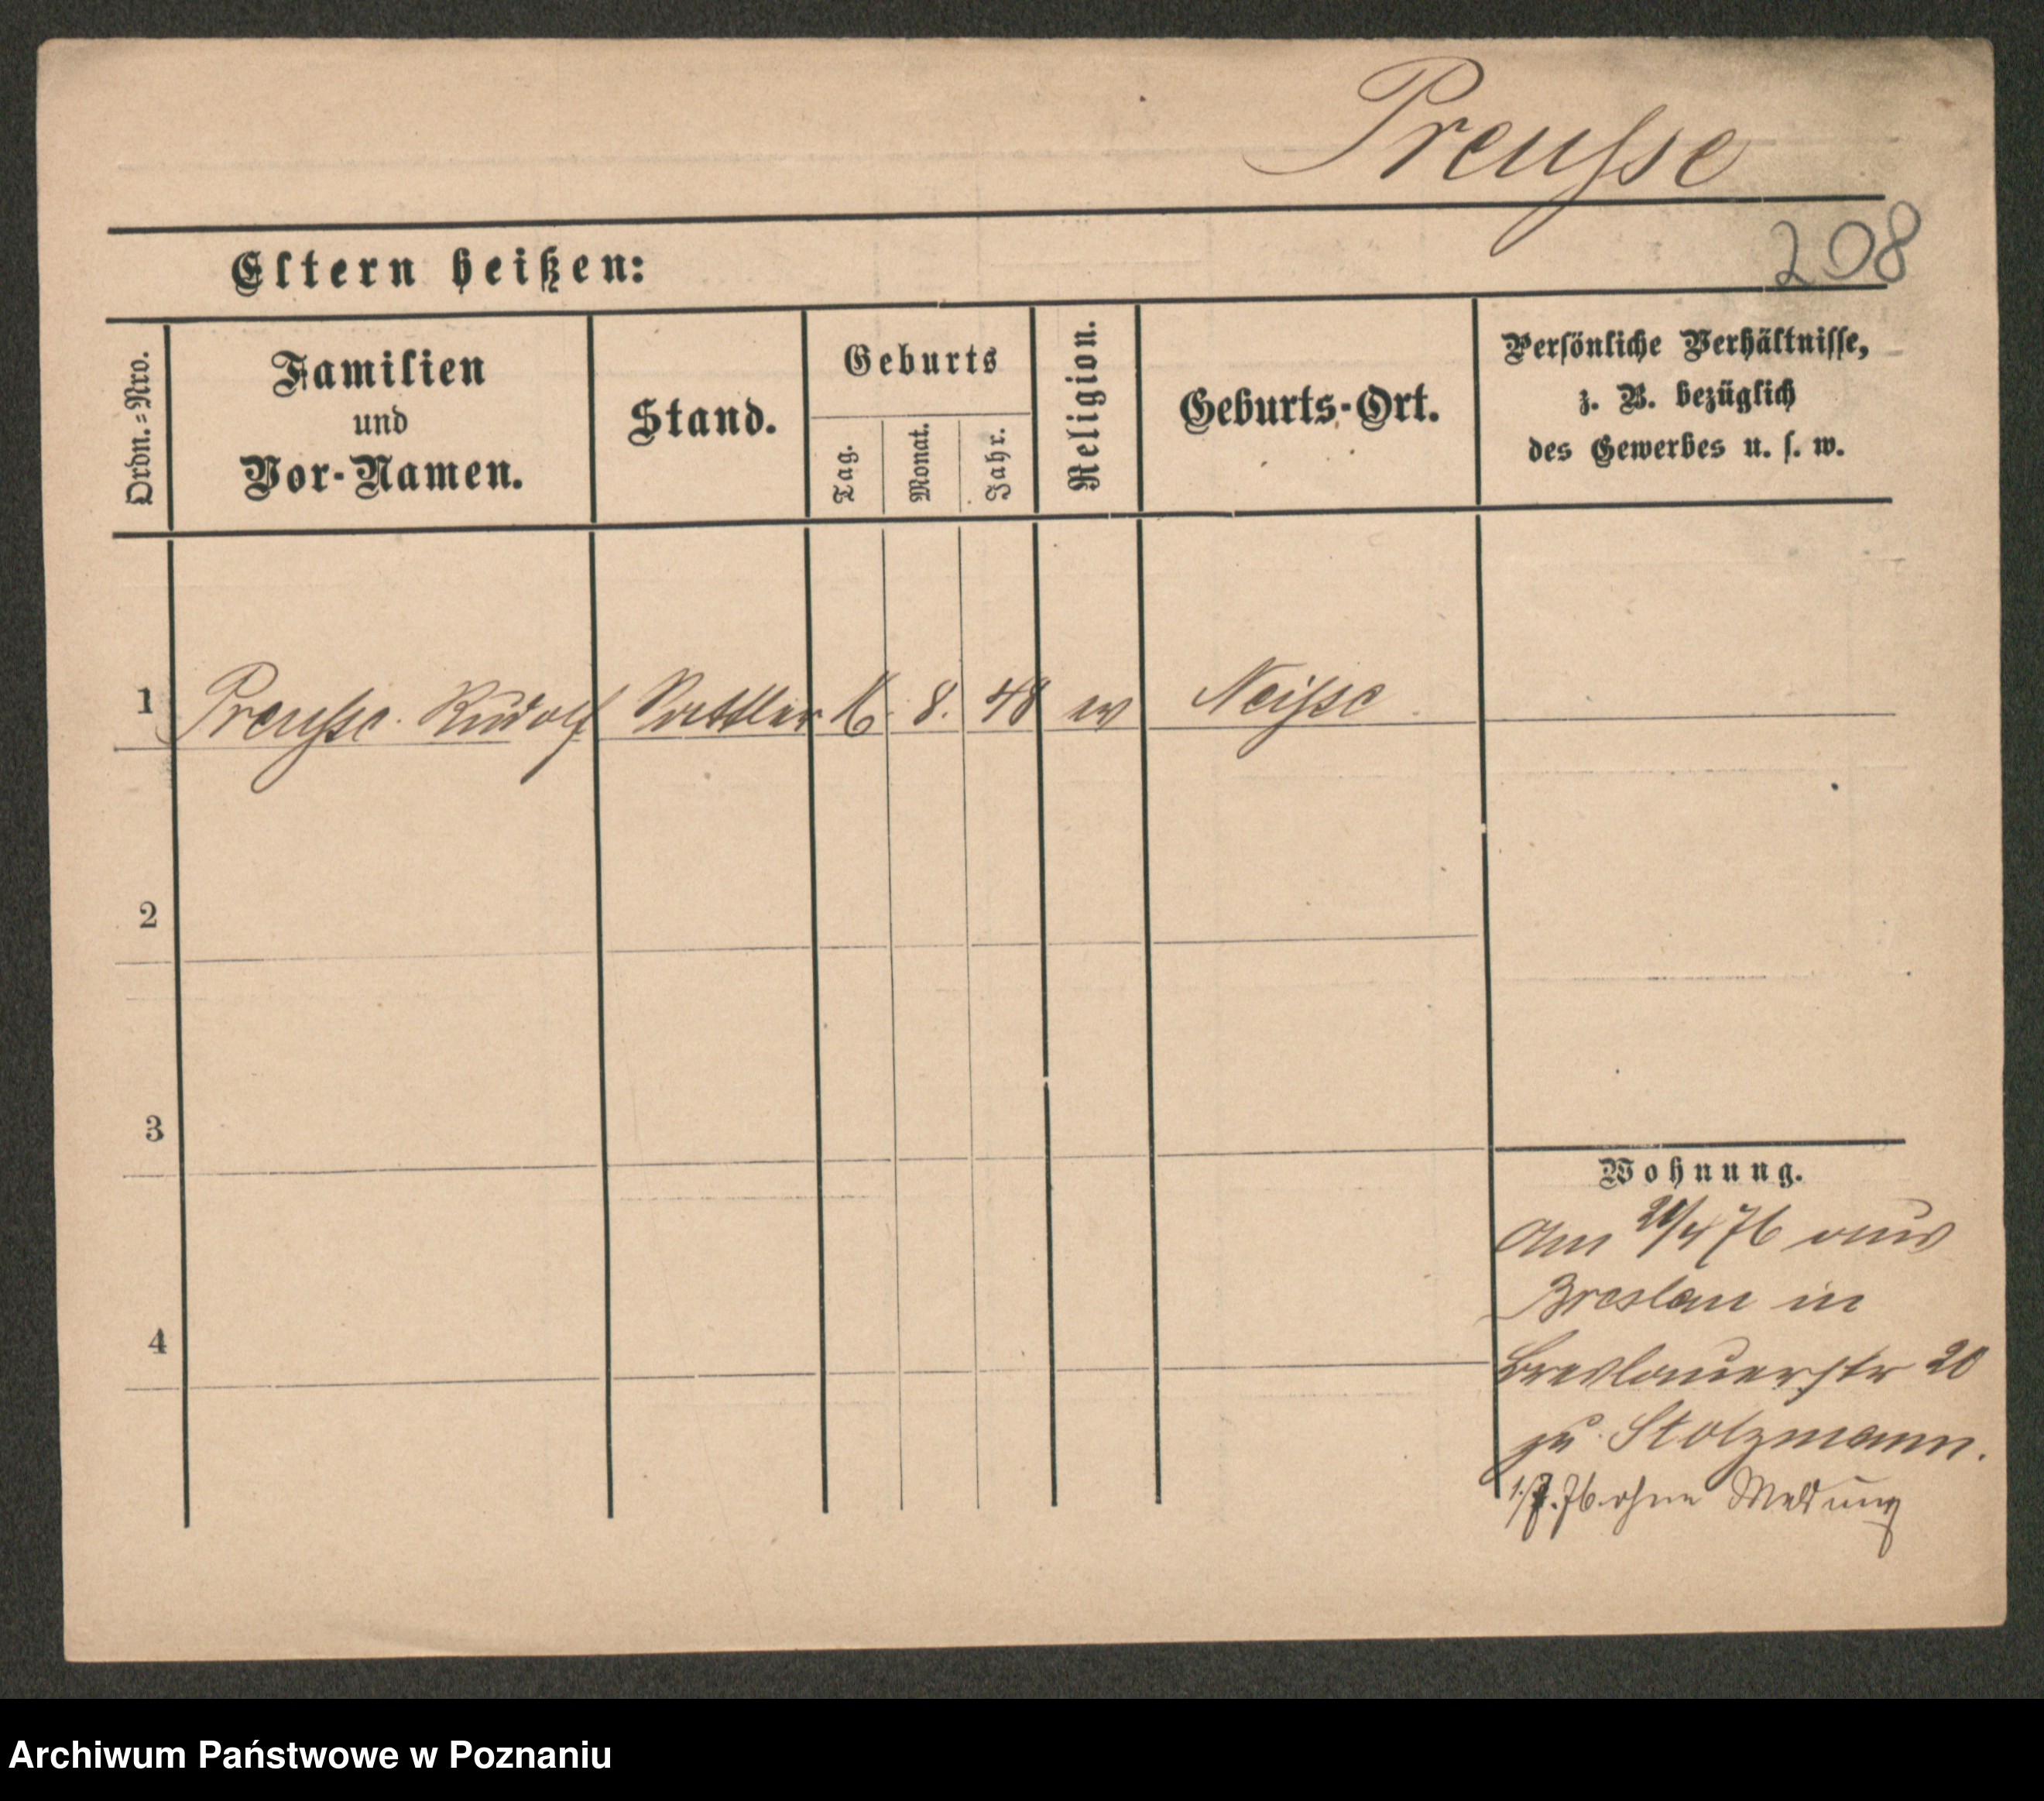 Preußse
208
Eltern heißen:
Ordn.=Nro.
Familien
und
Vor-Namen.
Stand.
Geburts
Tag.
Monat.
Jahr.
Religion.
Geburts-Ort.
Persönliche Verhältnisse,
z. B. bezüglich
des Gewerbes u. s. w.
1 Preusse. Rudolf Sattler 16. 8. 48 ev Neisse
2
3
4
Wohnung.
Am /4 76 aus
Breslau in
Breslauerstr 20
zu Stolzmann.
1./7.76 ohne Meldung
Archiwum Państwowe w Poznaniu